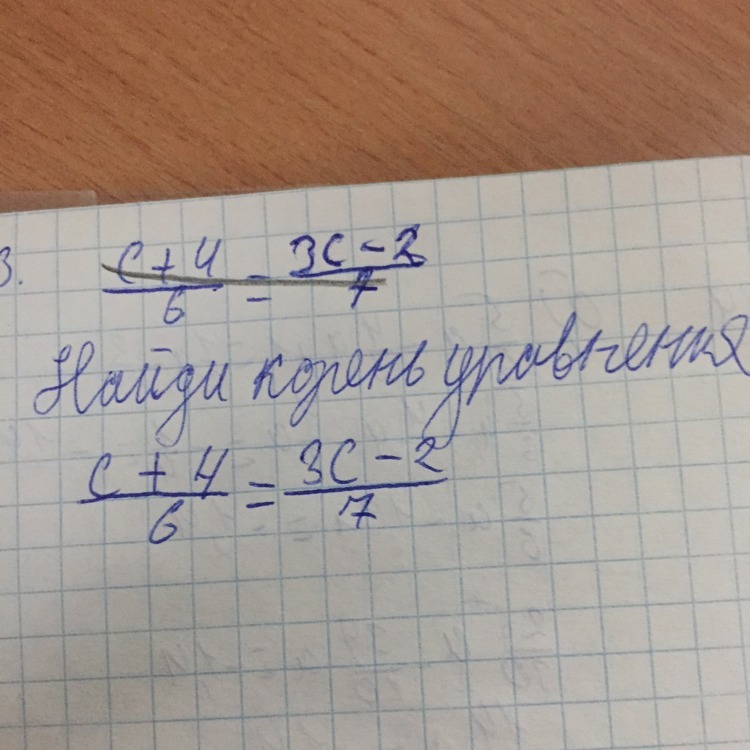 3. c + 4 / 6 = 3c - 2 / 7
Найди корень уравнения
c + 4 / 6 = 3c - 2 / 7